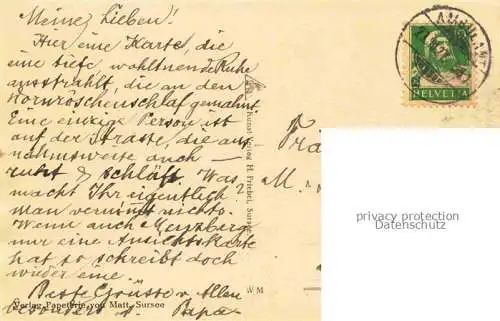 Meine Lieben!
Hier eine Karte, die
eine tiefe wohltuende Ruhe
ausstrahlt, die an den
Dornröschenschlaf gemahnt.
Eine einzige Person ist
auf der Strasse, die aus-
nahmsweise auch —
ruht & schläft. Was
macht Ihr eigentlich?
Man vernimmt nichts.
Wenn auch Menzberg
nur eine Ansichtskarte
hat so schreibt doch
wieder eine.
Beste Grüsse v. Allen
besonders v. Papa
Verlag Papeterie von Matt, Sursee
Kunst Verlag H. Friebel, Sursee
W M
AMBULANT
HELVETIA
M.
privacy protection
Datenschutz